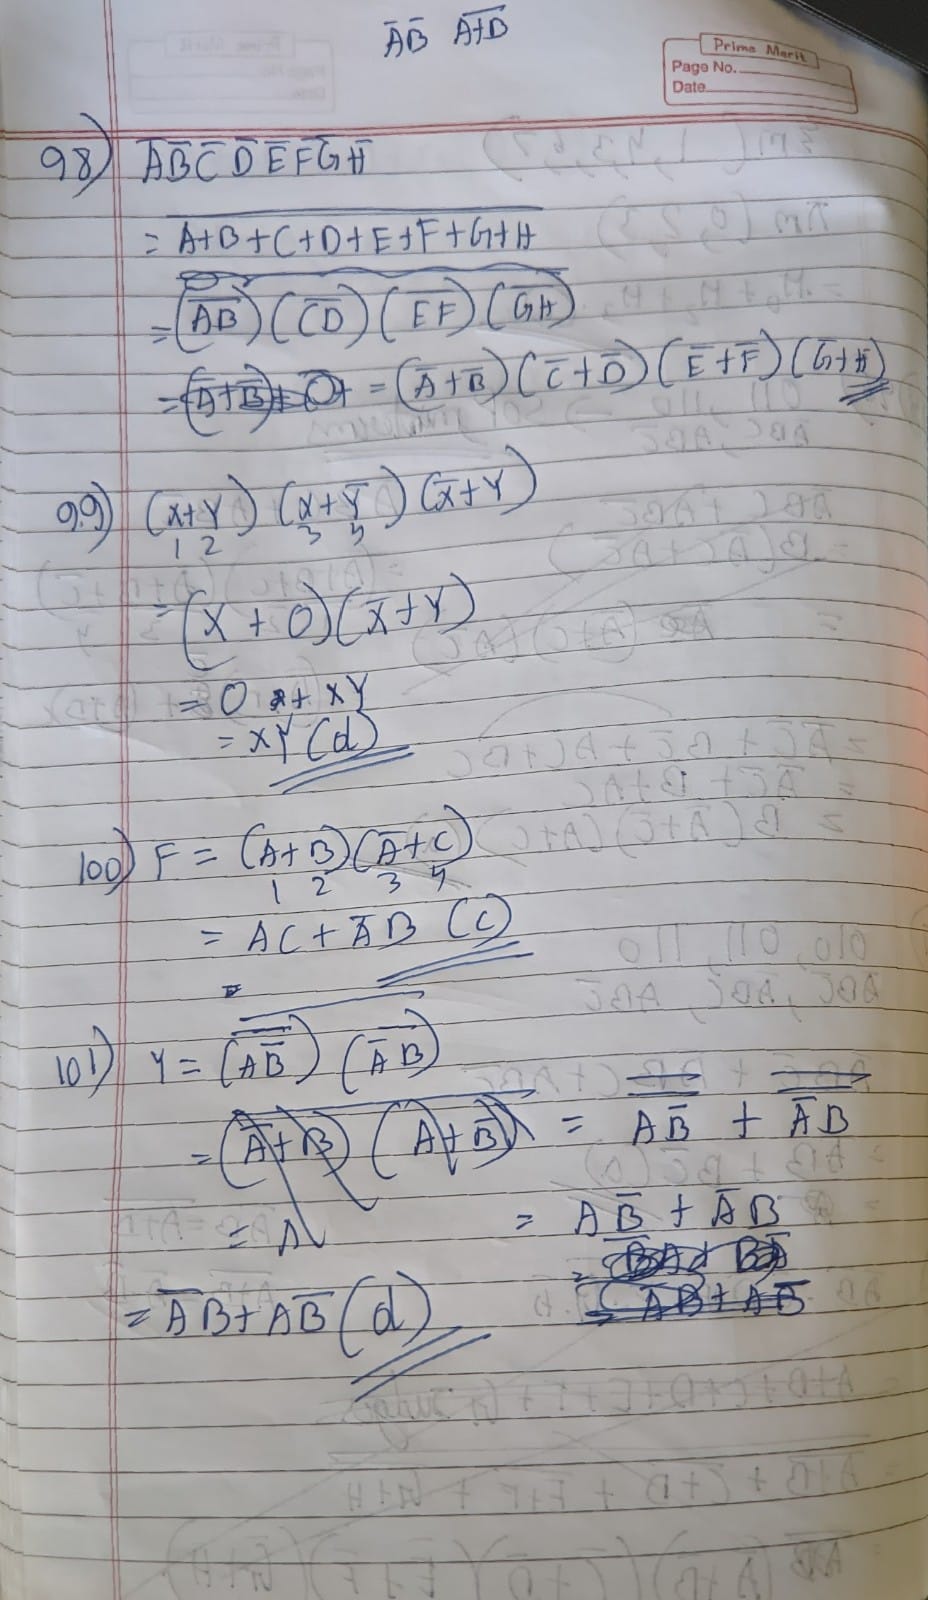 A̅B̅ A̅+̅B̅
Prime Merit
Page No.
Date
98) A̅ B̅ C̅ D̅ E̅ F̅ G̅ H̅
= A̅+̅B̅+̅C̅+̅D̅+̅E̅+̅F̅+̅G̅+̅H̅
= (A̅B̅) (C̅D̅) (E̅F̅) (G̅H̅)
= (A̅+B̅) (C̅+D̅) (E̅+F̅) (G̅+H̅)
99) (X+Y) (X+Y̅) (X̅+Y)
1 2 3 4
= (X + 0) (X̅+Y)
= 0 + XY
= XY (d)
100) F = (A+B) (A̅+C)
1 2 3 4
= AC + A̅B (C)
=
101) Y = (A B̅) (A̅ B)
= (A̅+B) (A+B̅) = A B̅ + A̅ B
= A = A B̅ + A̅ B
= A̅B + AB̅ (d) = A̅B + AB̅